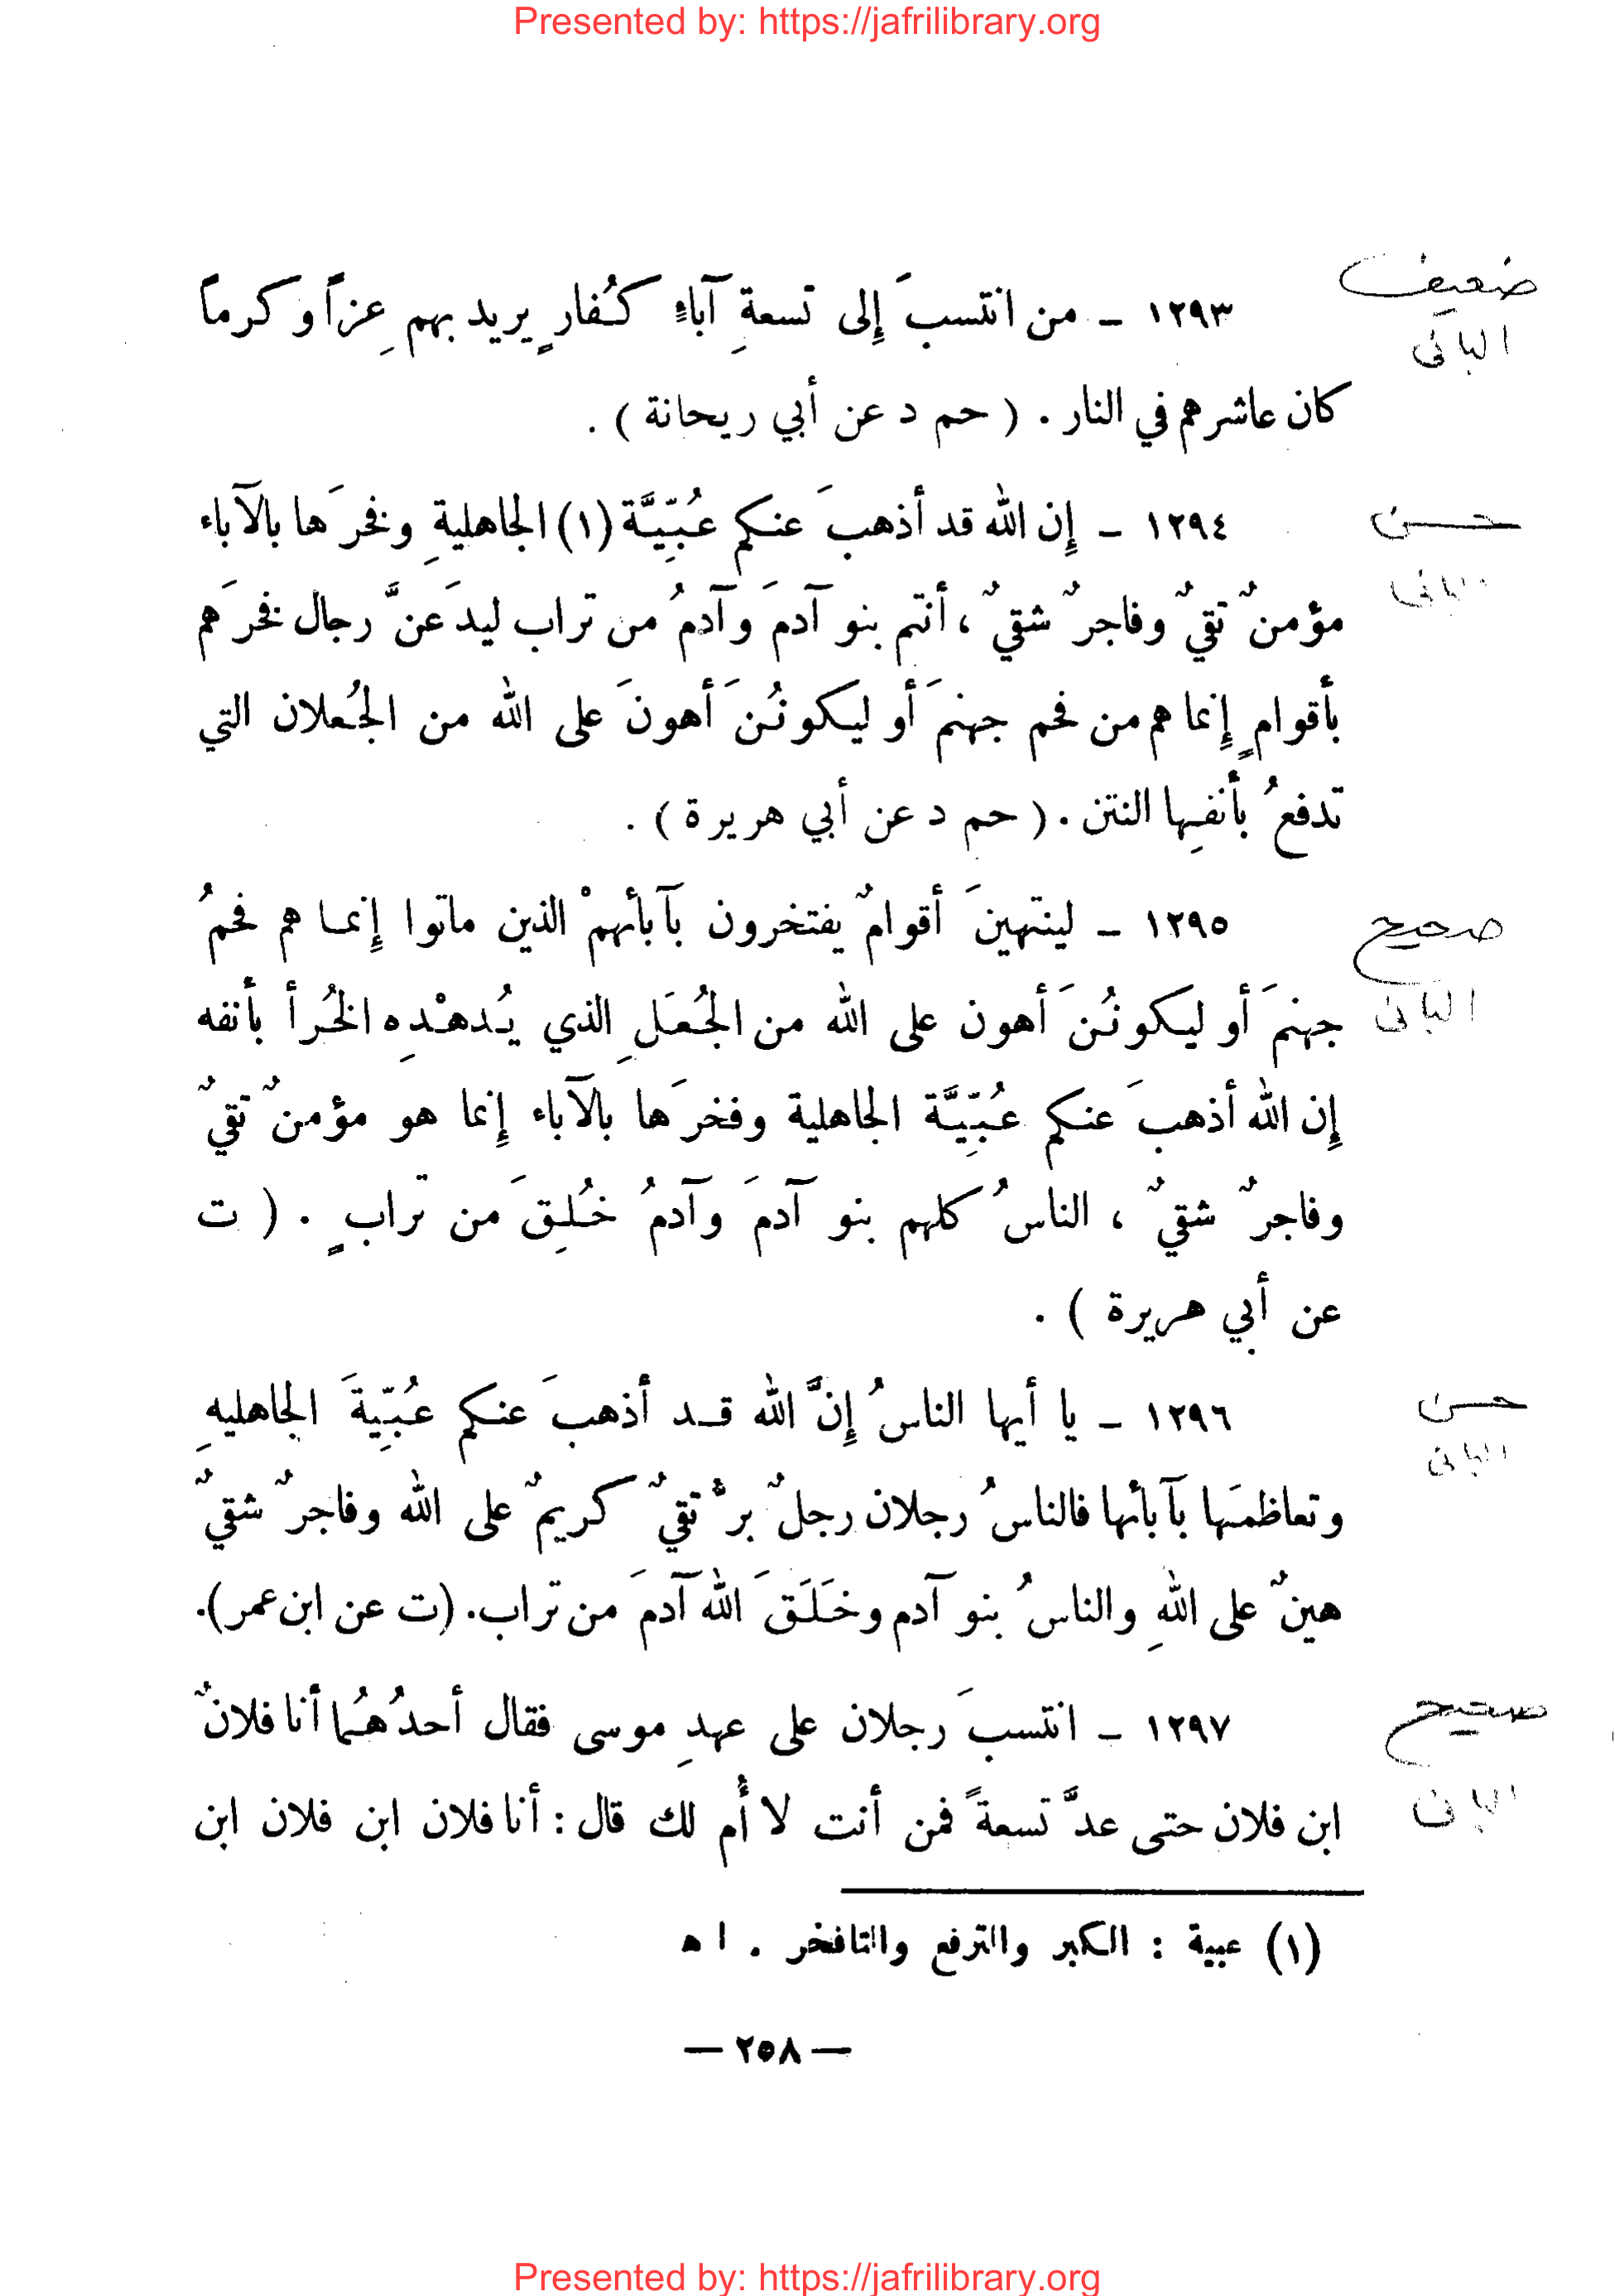 Presented by: https://jafrilibrary.org
ضعيف
البانى
١٢٩٣ ـ من انتسبَ إِلى تسعةِ آباءٍ كُفارٍ يريد بهم عِزاً وكرماً
كان عاشرهم في النار . ( حم د عن أبي ريحانة ) .
حسن
البانى
١٢٩٤ ـ إِن الله قد أذهبَ عنكم عُبِّيَّة (١) الجاهليةِ وفخرَها بالآباء
مؤمنٌ تقيٌ وفاجرٌ شقيٌ ، أنتم بنو آدمَ وآدمُ من تراب ليدَعنَّ رجال فخرَهم
بأقوامٍ إِنما هم من فحم جهنمَ أو ليكونُنَ أهونَ على الله من الجُعلان التي
تدفعُ بأنفِها النتن . ( حم د عن أبي هريرة ) .
صحيح
البانى
١٢٩٥ ـ لينتهينَ أقوامٌ يفتخرون بآبأئهمْ الذين ماتوا إِنما هم فحمُ
جهنمَ أو ليكونُنَ أهون على الله من الجُعَلِ الذي يُدهْدِه الخُرأ بأنفه
إِن الله أذهبَ عنكم عُبِّيَّة الجاهلية وفخرَها بالآباء إِنما هو مؤمنٌ تقيٌ
وفاجرٌ شقيٌ ، الناسُ كلهم بنو آدمَ وآدمُ خُلِقَ من ترابٍ . ( ت
عن أبي هريرة ) .
حسن
البانى
١٢٩٦ ـ يا أيها الناسُ إِنَّ الله قد أذهبَ عنكم عُبِّيةَ الجاهليهِ
وتعاظمَها بآبأئها فالناسُ رجلان رجلٌ برٌ تقيٌ كريمٌ على الله وفاجرٌ شقيٌ
هينٌ على اللهِ والناسُ بنو آدم وخَلَقَ الله آدمَ من تراب. (ت عن ابن عمر).
صحيح
البانى
١٢٩٧ ـ انتسبَ رجلان على عهدِ موسى فقال أحدُهُما أنا فلانٌ
ابن فلان حتى عدَّ تسعةً فمن أنت لا أُم لك قال : أنا فلان ابن فلان ابن
(١) عبية : الكبر والترفع والتافخر . ا ه
— ٢٥٨ —
Presented by: https://jafrilibrary.org